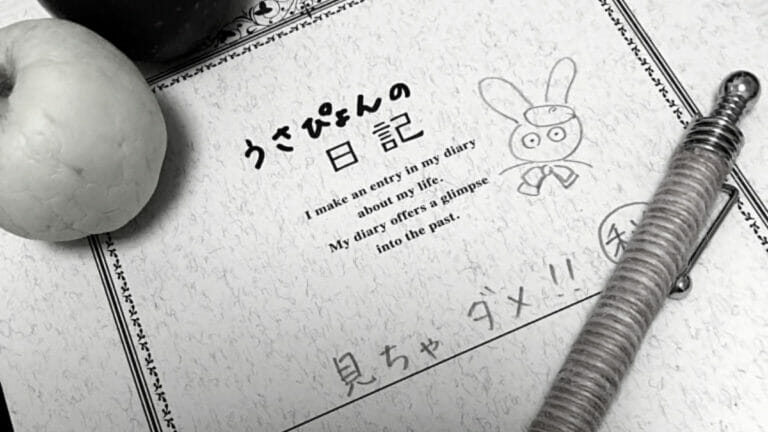 うさぴょんの
日記
I make an entry in my diary
about my life.
My diary offers a glimpse
into the past.
見ちゃダメ!!